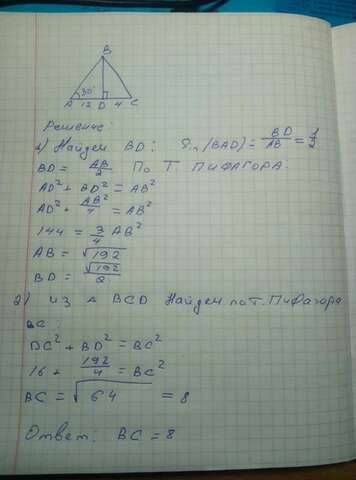 B
30°
A 12 D 4 C
Решение:
1) Найдем BD: Sin(BAD) = BD/AB = 1/2
BD = AB/2 по т. ПИФАГОРА.
AD² + BD² = AB²
AD² + AB²/4 = AB²
144 = 3/4 AB²
AB = √192
BD = √192/2
2) из Δ BCD Найдем по т. Пифагора
BC:
DC² + BD² = BC²
16 + 192/4 = BC²
BC = √64 = 8
Ответ: BC = 8